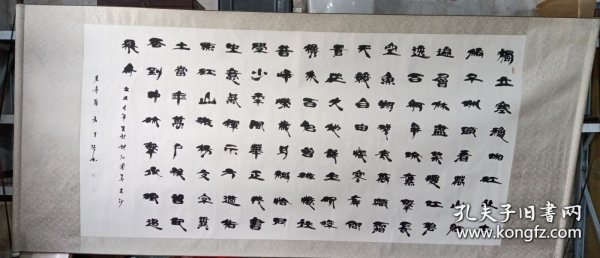 獨立寒秋湘江北去
橘子洲頭看萬山紅
遍層林盡染漫江碧
透百舸爭流鷹擊長
空魚翔淺底萬類霜
天競自由悵寥廓問
蒼茫大地誰主沉浮
攜來百侶曾遊憶往
昔崢嶸歲月稠恰同
學少年風華正茂書
生意氣揮斥方遒指
點江山激揚文字糞
土當年萬戶侯曾記
否到中流擊水浪遏
飛舟
孔夫子旧书网
www.kongfz.com